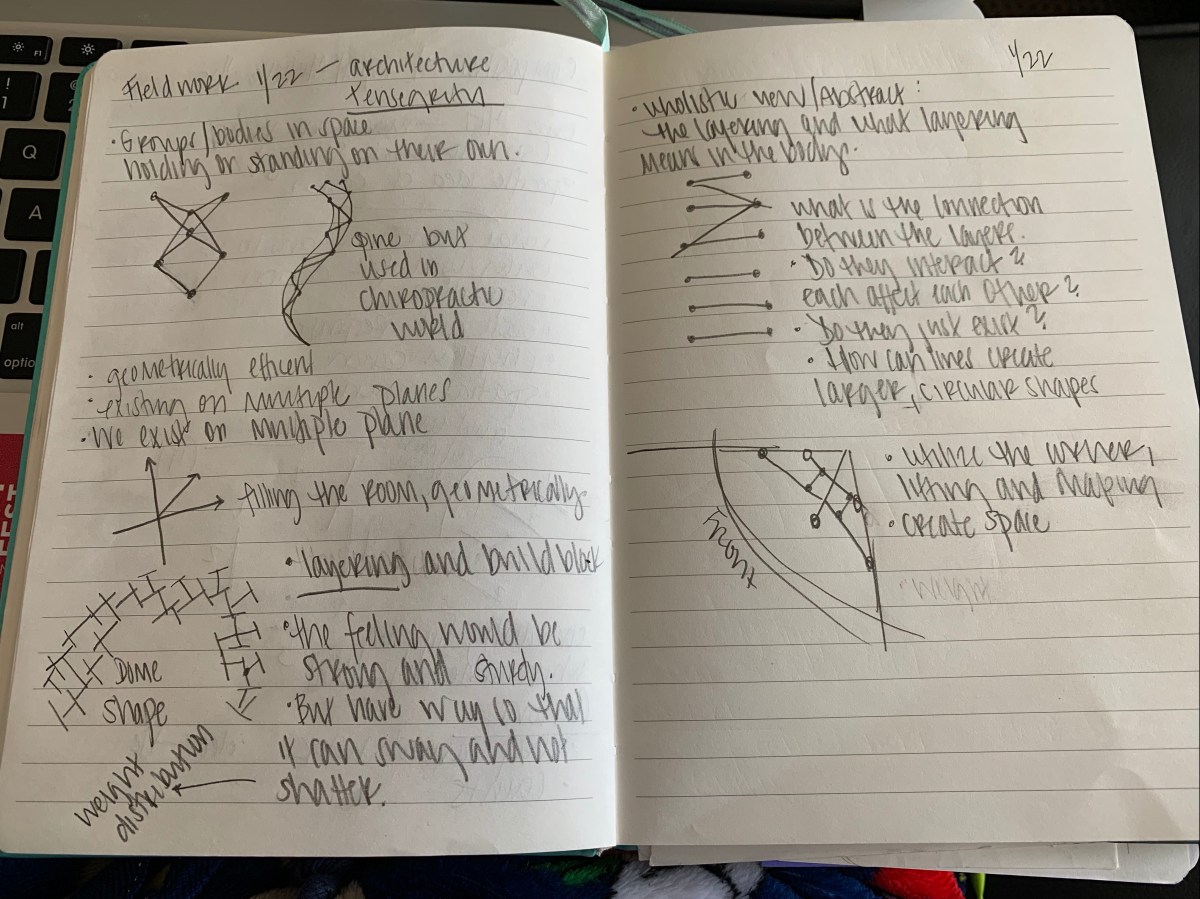 Fieldwork 1/22 — architecture
Tensegrity
• Groups/bodies in space
holding or standing on their own.
spine but
used in
chiropractic
world
• geometrically efficent
• existing on multiple planes
• We exist on multiple plane
filling the room, geometrically
• layering and build block
• the feeling would be
strong and sturdy.
Dome
shape
• But have way so that
it can sway and not
shatter.
weight
distribution
1/22
• wholistic view/Abstract:
the layering and what layering
means in the body.
what is the connection
between the layers.
• Do they interact?
each affect each other?
• Do they just exist?
• How can lines create
larger, circular shapes
• utilize the corner,
lifting and shaping
• create space
Front
• weight
F1
!
1
2
Q
A
alt
optio